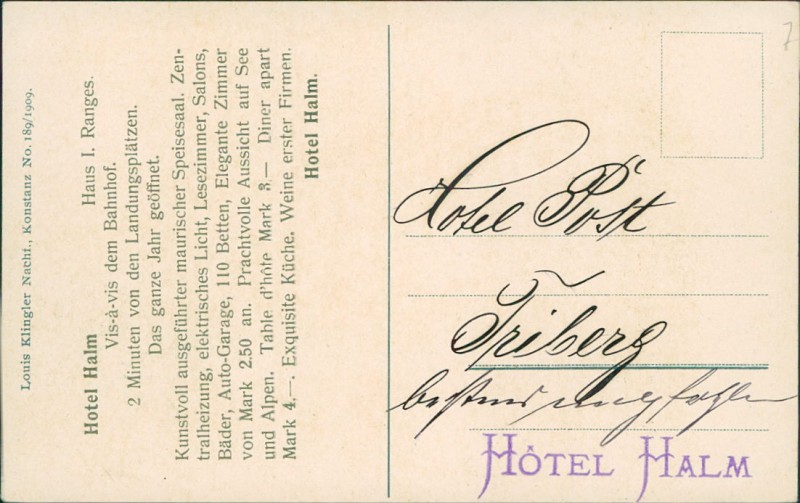 Louis Klingler Nachf., Konstanz No. 189/1909.
Hotel Halm Haus I. Ranges.
Vis-à-vis dem Bahnhof.
2 Minuten von den Landungsplätzen.
Das ganze Jahr geöffnet.
Kunstvoll ausgeführter maurischer Speisesaal. Zen-
tralheizung, elektrisches Licht, Lesezimmer, Salons,
Bäder, Auto-Garage, 110 Betten, Elegante Zimmer
von Mark 2.50 an. Prachtvolle Aussicht auf See
und Alpen. Table d'hôte Mark 3.— Diner apart
Mark 4.—. Exquisite Küche. Weine erster Firmen.
Hotel Halm.
7
Hotel Post
Triberg
bestens empfohlen
HÔTEL HALM